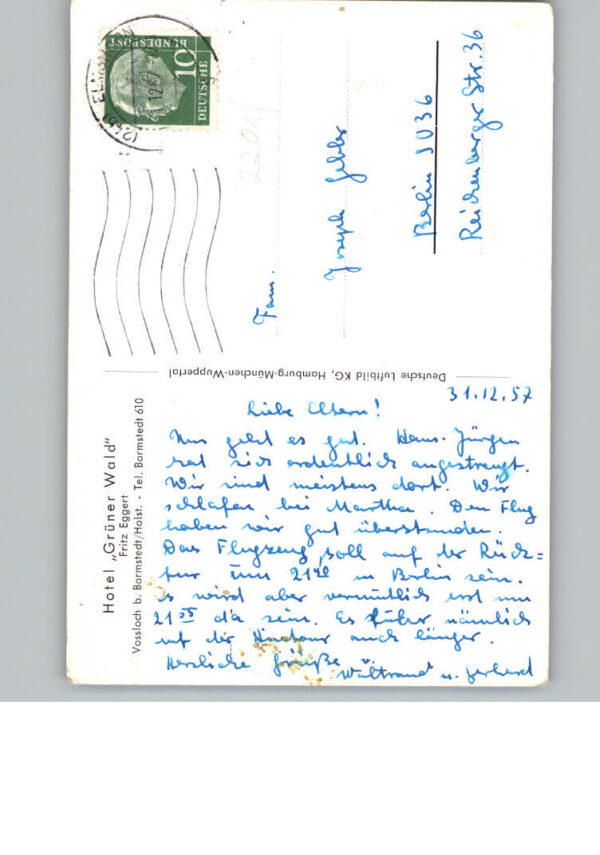 DEUTSCHE
BUNDESPOST
10
2201/
Fam.
Joseph Gebler
Berlin SO36
Reichenberger Str. 36
Deutsche Luftbild KG, Hamburg-München-Wuppertal
Hotel „Grüner Wald"
Fritz Eggert
Vossloch b. Barmstedt/Holst. - Tel. Barmstedt 610
31.12.57
Liebe Eltern!
Uns geht es gut. Hans-Jürgen
hat sich ordentlich angestrengt.
Wir sind meistens dort. Wir
schlafen bei Martha. Den Flug
haben wir gut überstanden.
Das Flugzeug soll auf der Rück=
tour um 21 in Berlin sein.
Es wird aber vermutlich erst um
21 55 da sein. Es nämlich
auf der auch länger.
Herzliche Grüße
Waltraud u. Gerhard